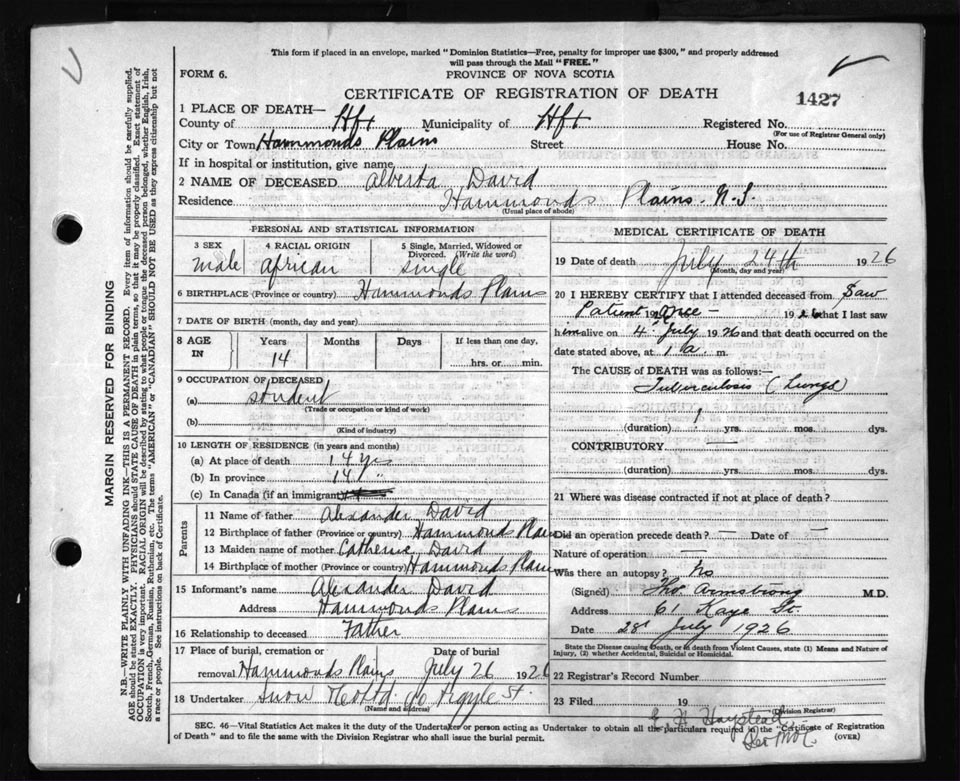 This form if placed in an envelope, marked "Dominion Statistics—Free, penalty for improper use $300," and properly addressed
will pass through the Mail "FREE."
FORM 6.
PROVINCE OF NOVA SCOTIA
CERTIFICATE OF REGISTRATION OF DEATH
1427
1 PLACE OF DEATH—
County of Hfx Municipality of Hfx Registered No.
(For use of Registrar General only)
City or Town Hammonds Plains Street House No.
If in hospital or institution, give name
2 NAME OF DECEASED Alberta David
Residence Hammonds Plains. N.S.
(Usual place of abode)
PERSONAL AND STATISTICAL INFORMATION
3 SEX 4 RACIAL ORIGIN 5 Single, Married, Widowed or Divorced. (Write the word)
male african single
6 BIRTHPLACE (Province or country) Hammonds Plains
7 DATE OF BIRTH (month, day and year)
8 AGE IN Years Months Days If less than one day,
14 hrs. or min.
9 OCCUPATION OF DECEASED
(a) student
(Trade or occupation or kind of work)
(b)
(Kind of industry)
10 LENGTH OF RESIDENCE (in years and months)
(a) At place of death 14 yrs
(b) In province 14 "
(c) In Canada (if an immigrant)
Parents
11 Name of father Alexander David
12 Birthplace of father (Province or country) Hammonds Plains
13 Maiden name of mother Catherine David
14 Birthplace of mother (Province or country) Hammonds Plains
15 Informant's name Alexander David
Address Hammonds Plains
16 Relationship to deceased Father
17 Place of burial, cremation or removal Date of burial
Hammonds Plains July 26 1926
18 Undertaker Snow & Co Ltd. 90 Argyle St.
(Name and address)
MEDICAL CERTIFICATE OF DEATH
19 Date of death July 24th 1926
(Month, day and year)
20 I HEREBY CERTIFY that I attended deceased from Saw
Patient once – 1926 that I last saw
him alive on 4" July 1926 and that death occurred on
date stated above, at 1 a. m.
The CAUSE of DEATH was as follows:—
Tuberculosis (Lungs)
(duration) 1 yrs. mos. dys.
CONTRIBUTORY —
(duration) yrs. mos. dys.
21 Where was disease contracted if not at place of death?
Did an operation precede death? — Date of —
Nature of operation —
Was there an autopsy? No
(Signed) Tho Armstrong M.D.
Address 61 Kaye St.
Date 28" July 1926
State the Disease causing Death, or in death from Violent Causes, state (1) Means and Nature of
Injury, (2) whether Accidental, Suicidal or Homicidal.
22 Registrar's Record Number
23 Filed 19
(Division Registrar)
SEC. 46—Vital Statistics Act makes it the duty of the Undertaker or person acting as Undertaker to obtain all the particulars required in the "Certificate of Registration
of Death" and to file the same with the Division Registrar who shall issue the burial permit. (OVER)
MARGIN RESERVED FOR BINDING
N.B.—WRITE PLAINLY WITH UNFADING INK—THIS IS A PERMANENT RECORD. Every item of information should be carefully supplied.
AGE should be stated EXACTLY. PHYSICIANS should STATE CAUSE OF DEATH in plain terms, so that it may be properly classified. Exact statement of
OCCUPATION is very important. RACIAL ORIGIN will be described by stating to what people or tongue the deceased person belonged, whether English, Irish,
Scotch, French, German, Russian, Ruthenian, etc. The terms "AMERICAN" or "CANADIAN" SHOULD NOT BE USED as they express citizenship but not
a race or people. See instructions on back of Certificate.